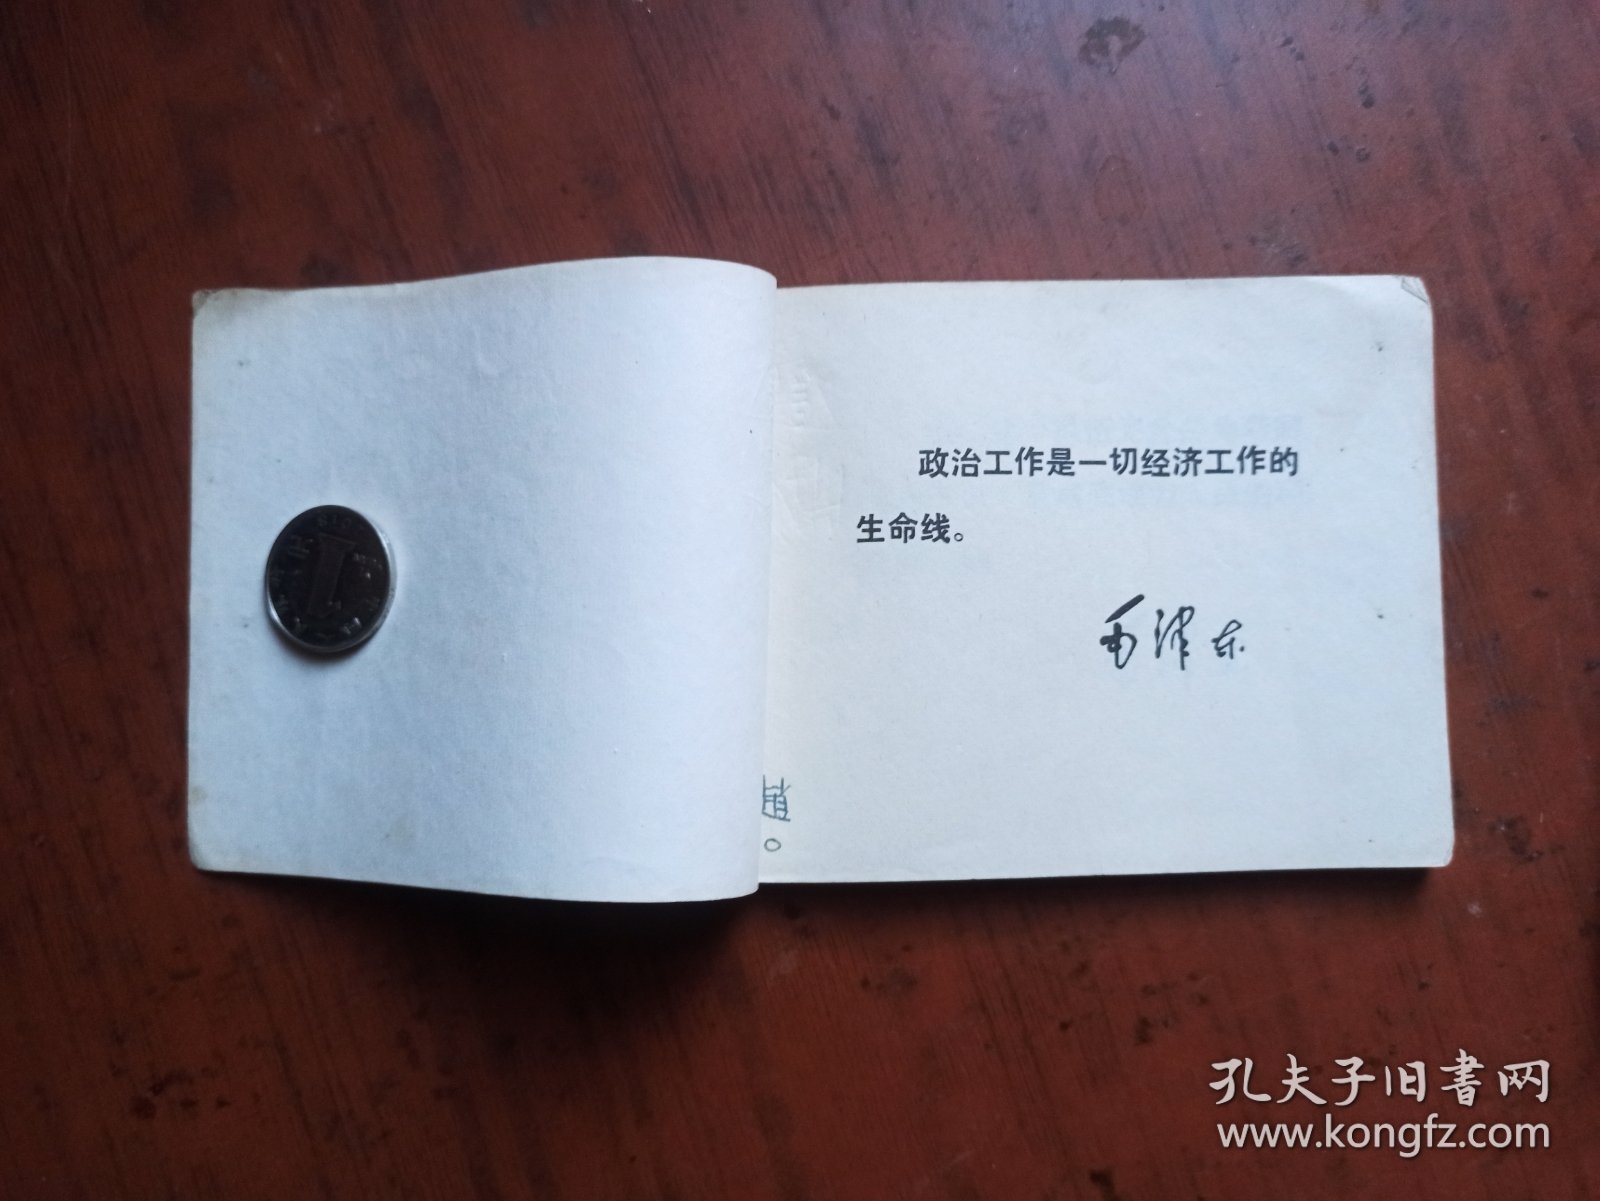 政治工作是一切经济工作的
生命线。
毛泽东
孔夫子旧書网
www.kongfz.com